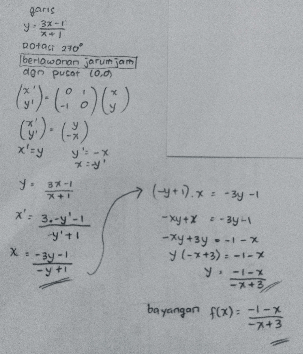 garis
y = 3x-1 / x+1
Rotasi 270°
berlawanan jarum jam
dgn pusat (0,0)
(x' y') = (0 1 -1 0) (x y)
(x' y') = (y -x)
x' = y y' = -x
x = -y'
y = 3x-1 / x+1
x' = 3.-y'-1 / -y'+1
x = -3y-1 / -y+1
(-y+1).x = -3y-1
-xy+x = -3y-1
-xy+3y = -1-x
y(-x+3) = -1-x
y = -1-x / -x+3
bayangan f(x) = -1-x / -x+3